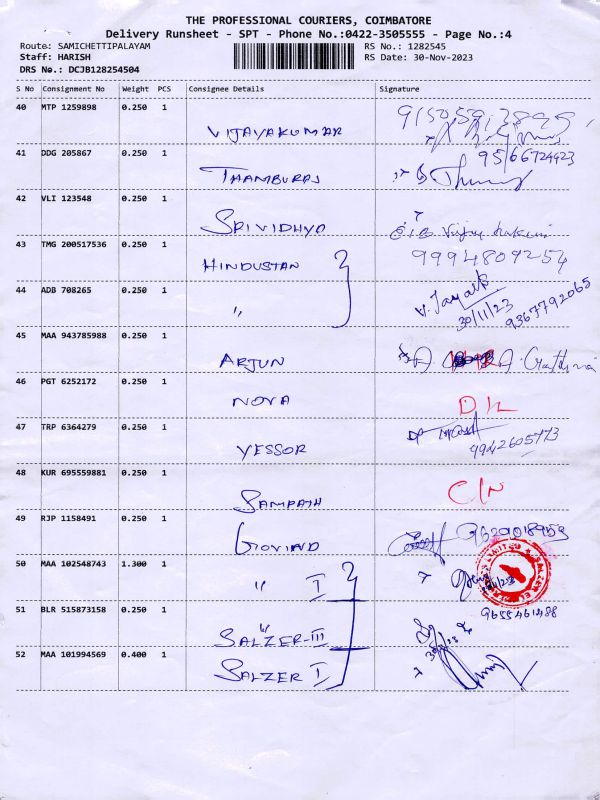 THE PROFESSIONAL COURIERS, COIMBATORE
Delivery Runsheet - SPT - Phone No.:0422-3505555 - Page No.:4
Route: SAMICHETTIPALAYAM
RS No.: 1282545
Staff: HARISH
RS Date: 30-Nov-2023
DRS No.: DCJB128254504
S No Consignment No Weight PCS Consignee Details Signature
40 MTP 1259898 0.250 1
VIJAYAKUMAR
41 DDG 205867 0.250 1
9566724423
THAMBURAJ
42 VLI 123548 0.250 1
SRIVIDHYA
43 TMG 200517536 0.250 1
HINDUSTAN
9994809254
44 ADB 708265 0.250 1
"
V. Jayalk
30/11/23
9367792065
45 MAA 943785988 0.250 1
ARJUN
46 PGT 6252172 0.250 1
NOVA
D/L
47 TRP 6364279 0.250 1
YESSOR
9942605773
48 KUR 695559881 0.250 1
SAMPATH
C/N
49 RJP 1158491 0.250 1
GOVIND
50 MAA 102548743 1.300 1
" I
51 BLR 515873158 0.250 1
9655461488
"
SALZER-III
52 MAA 101994569 0.400 1
SALZER I